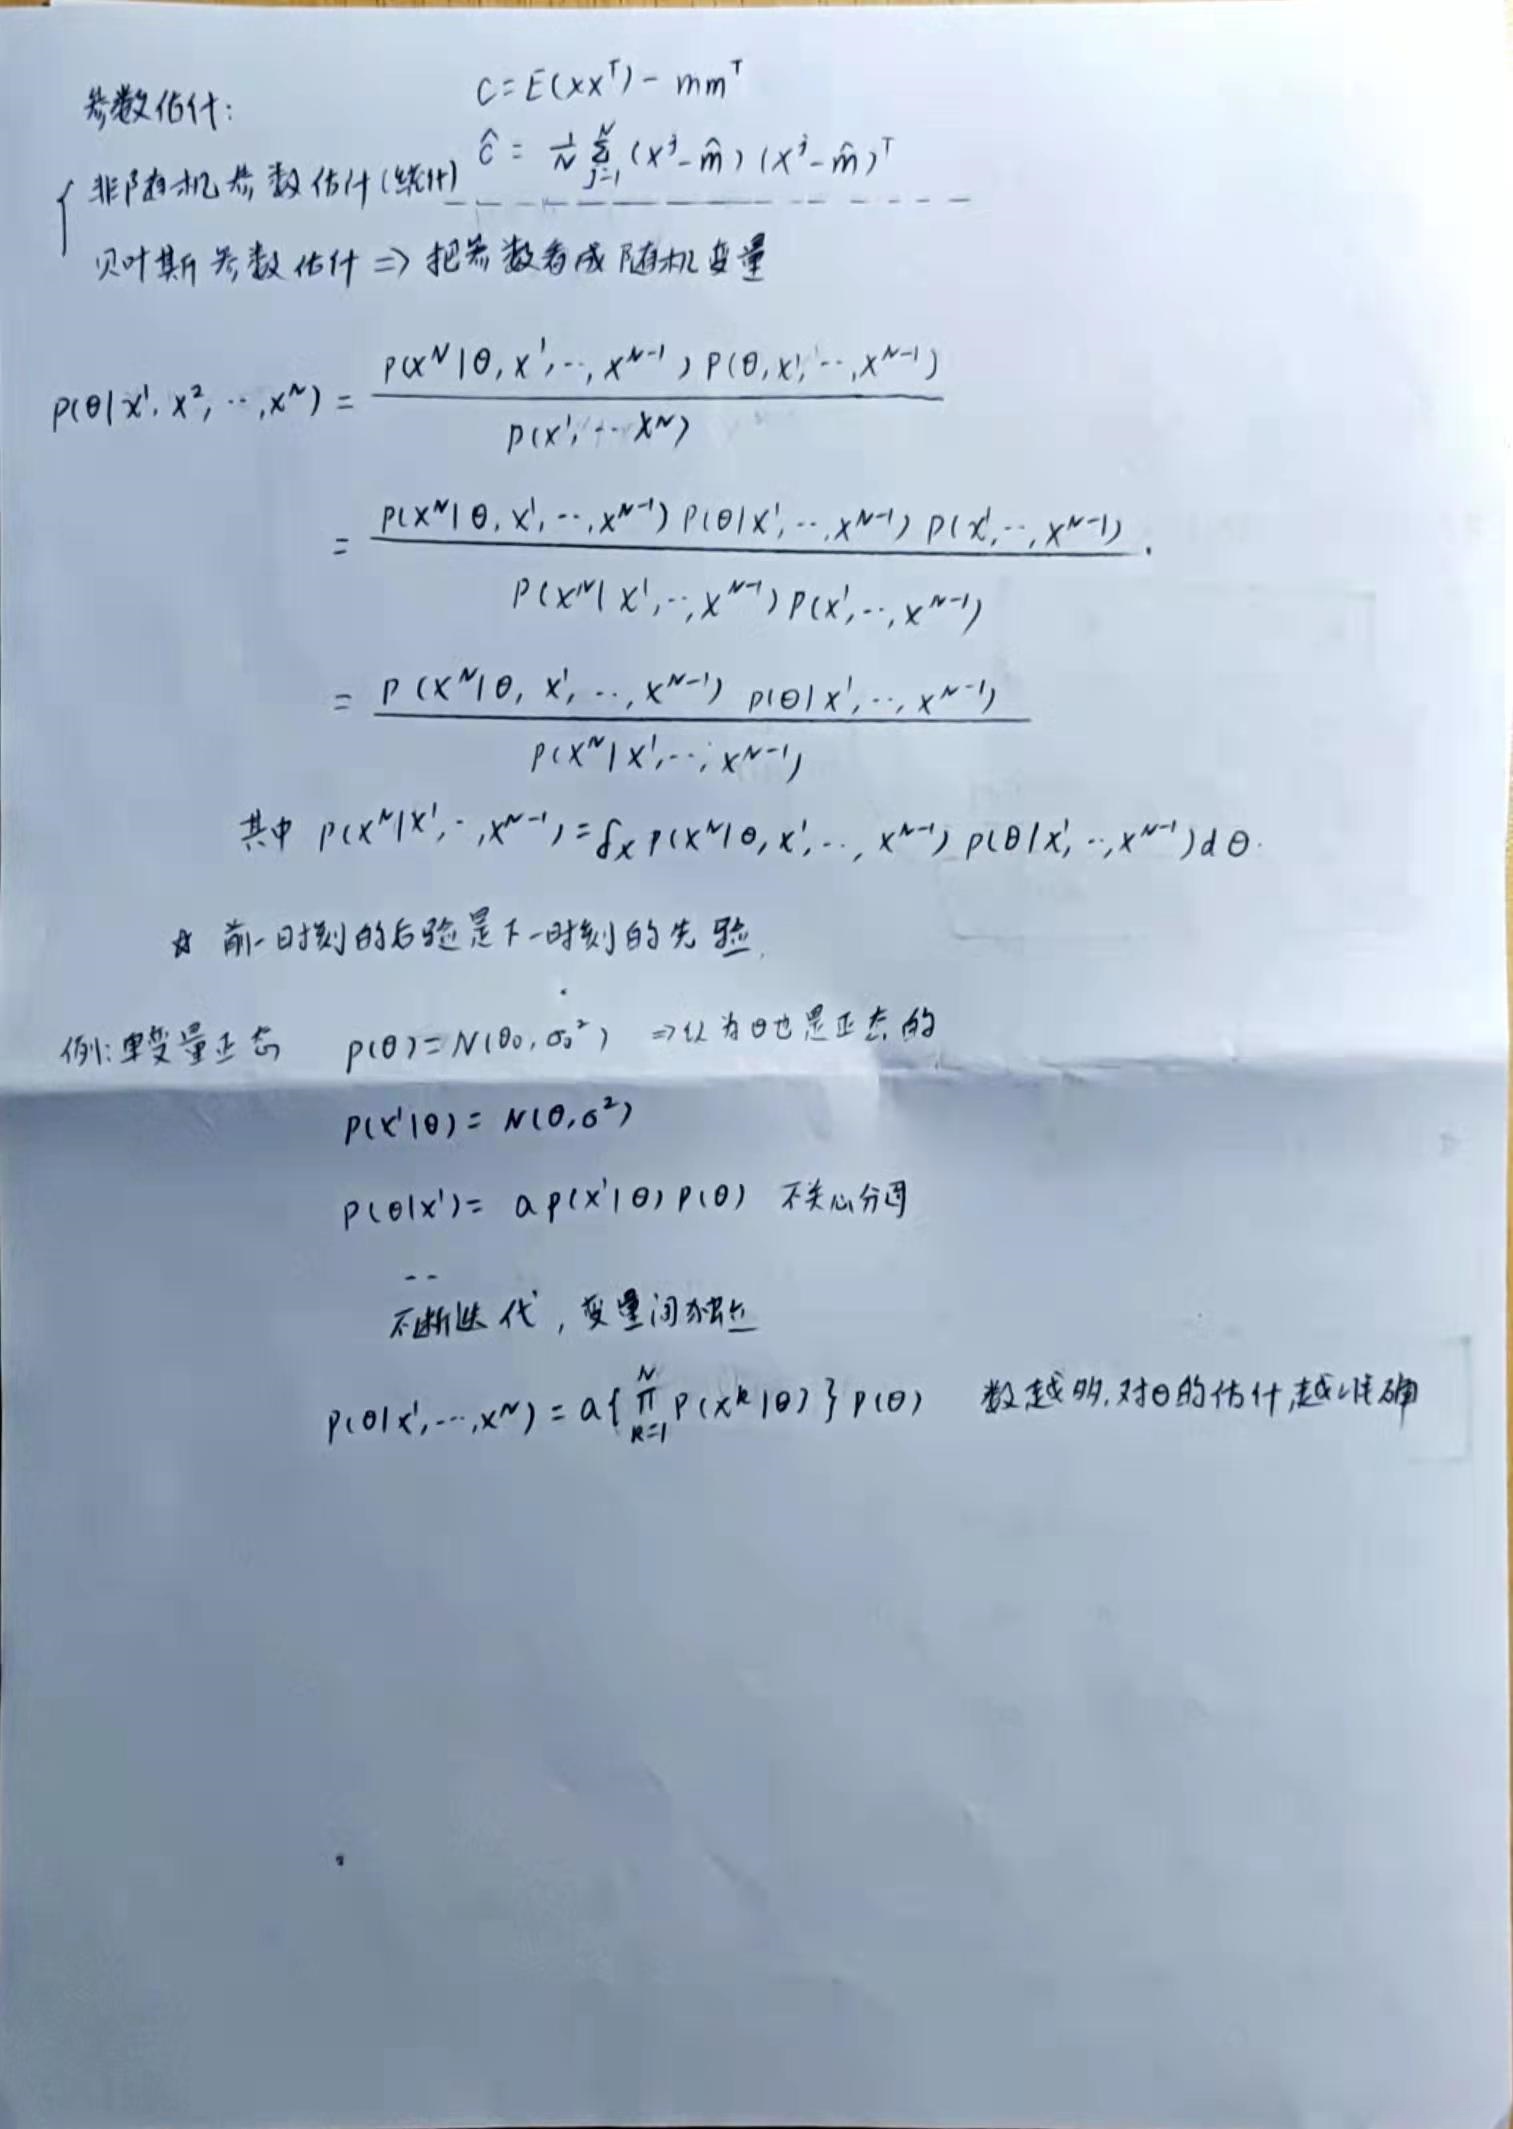 参数估计:
C = E(xxᵀ) - mmᵀ
Ĉ = 1/N Σ_{j=1}^{N} (xʲ - m̂)(xʲ - m̂)ᵀ
非随机参数估计(统计)
贝叶斯参数估计 ⇒ 把参数看成随机变量
P(θ|x¹, x², ‥, xᴺ) = P(xᴺ|θ, x¹, ‥, xᴺ⁻¹) P(θ, x¹, ‥, xᴺ⁻¹) / P(x¹, ‥ xᴺ)
= P(xᴺ|θ, x¹, ‥, xᴺ⁻¹) P(θ|x¹, ‥, xᴺ⁻¹) P(x¹, ‥, xᴺ⁻¹) / P(xᴺ|x¹, ‥, xᴺ⁻¹) P(x¹, ‥, xᴺ⁻¹) .
= P(xᴺ|θ, x¹, ‥, xᴺ⁻¹) P(θ|x¹, ‥, xᴺ⁻¹) / P(xᴺ|x¹, ‥, xᴺ⁻¹)
其中 P(xᴺ|x¹, ‥, xᴺ⁻¹) = ∫_x P(xᴺ|θ, x¹, ‥, xᴺ⁻¹) P(θ|x¹, ‥, xᴺ⁻¹) dθ.
☆ 前一时刻的后验是下一时刻的先验.
例: 单变量正态 P(θ) = N(θ₀, σ₀²) ⇒ 认为θ也是正态的
P(x¹|θ) = N(θ, σ²)
P(θ|x¹) = a P(x¹|θ) P(θ) 不关心分母
‥
不断迭代, 变量间独立
P(θ|x¹, ⋯, xᴺ) = a{ Π_{k=1}^{N} P(xᵏ|θ) } P(θ) 数越多,对θ的估计,越准确